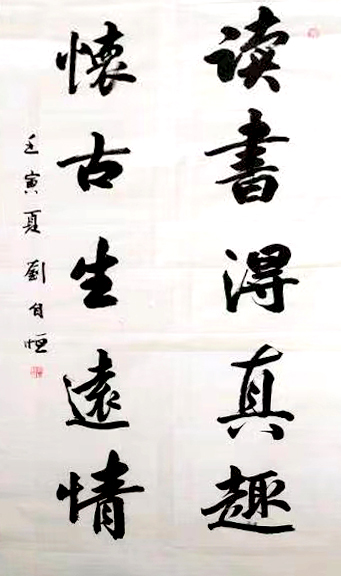 读書得真趣
懐古生遠情
壬寅夏劉自恒